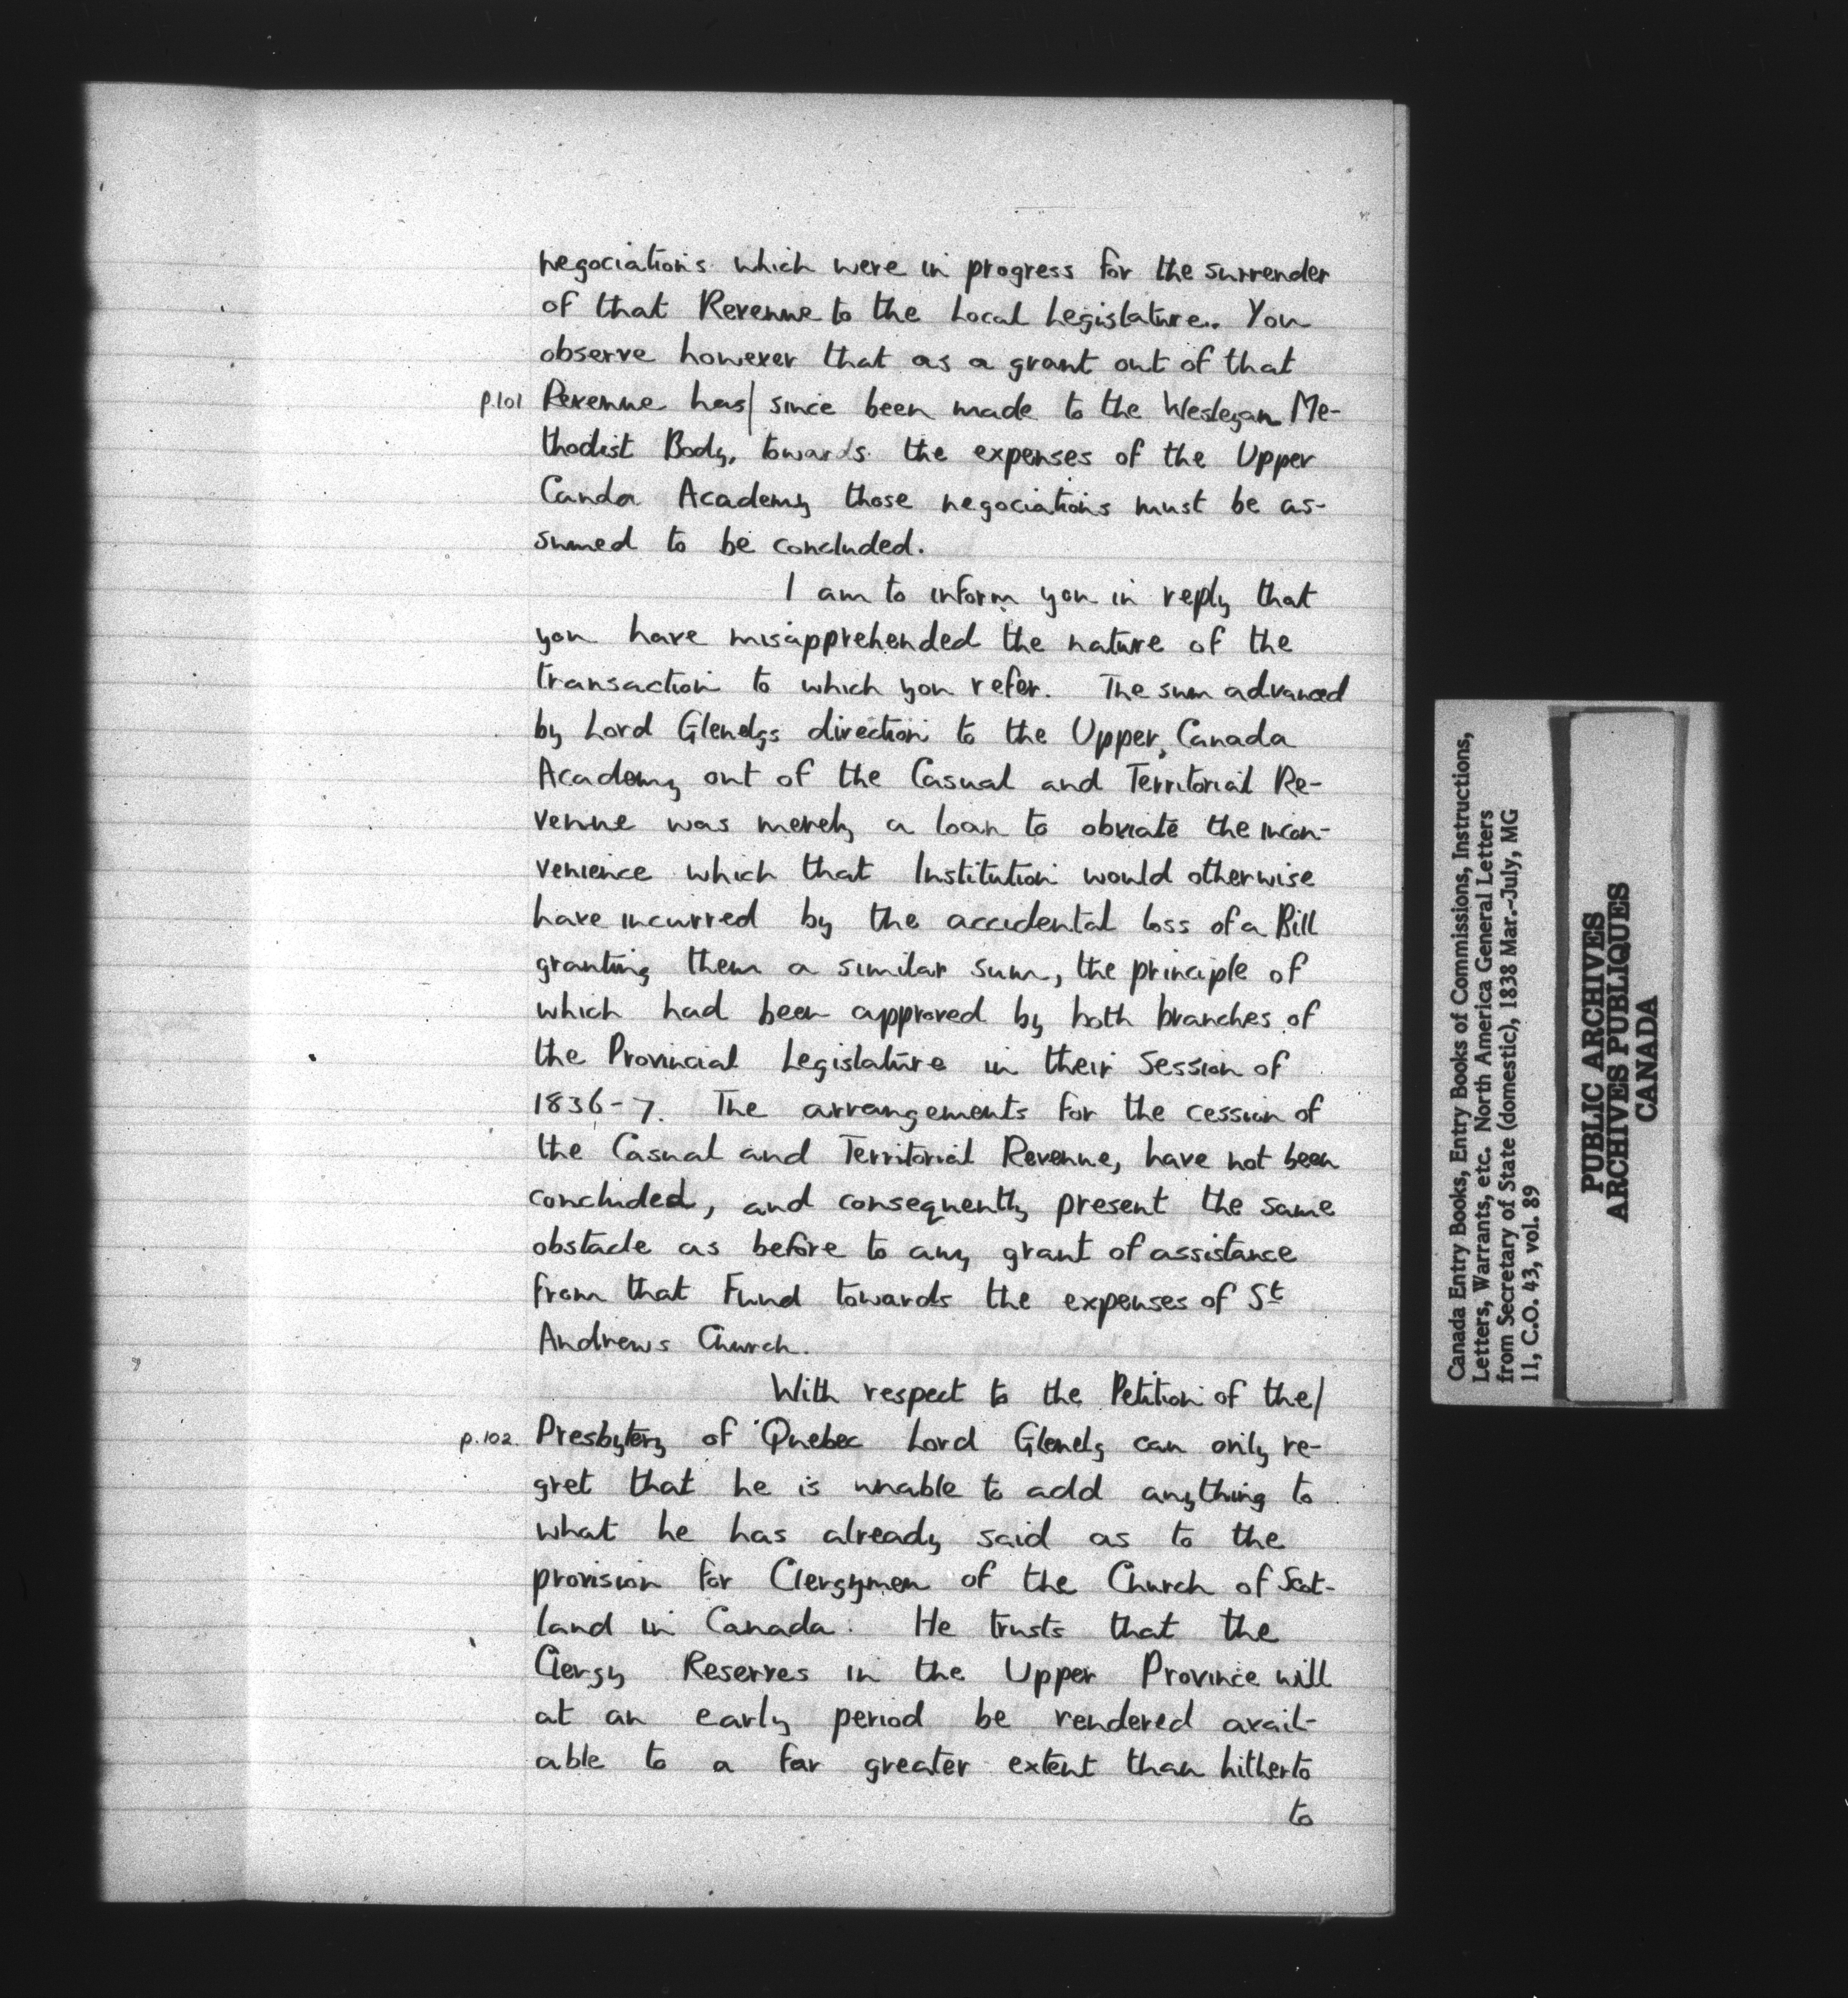 negociations which were in progress for the surrender
of that Revenue to the Local Legislature. You
observe however that as a grant out of that
p.101 Revenue has| since been made to the Wesleyan Me-
thodist Body, towards the expenses of the Upper
Canda Academy those negociations must be as-
sumed to be concluded.
I am to inform you in reply that
you have misapprehended the nature of the
transaction to which you refer. The sum advanced
by Lord Glenelgs direction to the Upper Canada
Academy out of the Casual and Territorial Re-
venue was merely a loan to obviate the incon-
venience which that Institution would otherwise
have incurred by the accidental loss of a Bill
granting them a similar sum, the principle of
which had been approved by both branches of
the Provincial Legislature in their Session of
1836-7. The arrangements for the cession of
the Casual and Territorial Revenue, have not been
concluded, and consequently present the same
obstacle as before to any grant of assistance
from that Fund towards the expenses of St
Andrews Church.
With respect to the Petition of the|
p.102. Presbytery of Quebec Lord Glenelg can only re-
gret that he is unable to add anything to
what he has already said as to the
provision for Clergymen of the Church of Scot-
land in Canada. He trusts that the
Clergy Reserves in the Upper Province will
at an early period be rendered avail-
able to a far greater extent than hitherto
to
Canada Entry Books, Entry Books of Commissions, Instructions,
Letters, Warrants, etc. North America General Letters
from Secretary of State (domestic), 1838 Mar.-July, MG
11, C.O. 43, vol. 89
PUBLIC ARCHIVES
ARCHIVES PUBLIQUES
CANADA